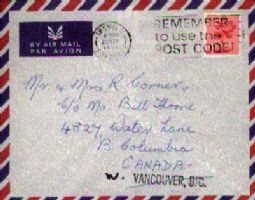 REMEMBER
to use the
POST CODE
BY AIR MAIL
PAR AVION
Mr & Mrs R Corner,
c/o Mr. Bill Thorne,
4827 Water Lane
B. Columbia
CANADA.
W. VANCOUVER, B.C.